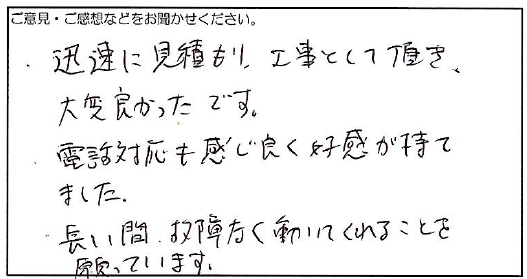 ご意見・ご感想などをお聞かせください。
・迅速に見積もり、工事として頂き、
大変良かったです。
・電話対応も感じ良く好感が持て
ました。
・長い間、故障なく動いてくれることを
願っています。